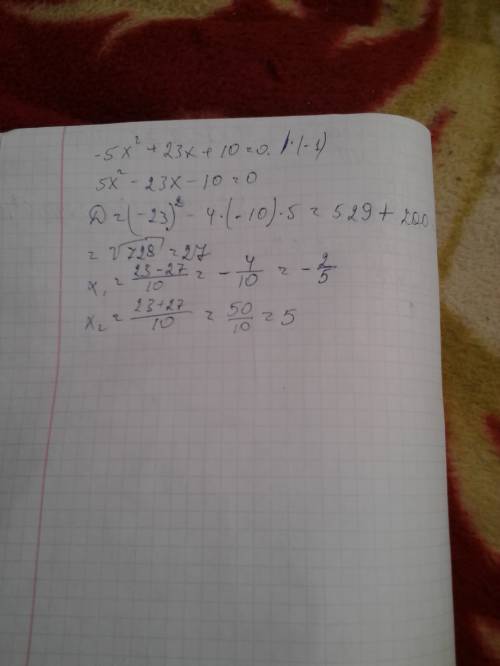 -5x² + 23x + 10 = 0. | · (-1)
5x² - 23x - 10 = 0
D = (-23)² - 4 · (-10) · 5 = 529 + 200
= √729 = 27
x₁ = \frac{23-27}{10} = -\frac{4}{10} = -\frac{2}{5}
x₂ = \frac{23+27}{10} = \frac{50}{10} = 5